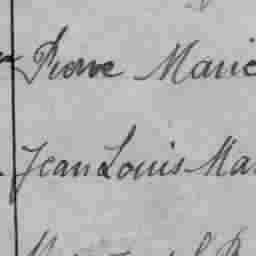 Pierre Marie
Jean Louis Mar